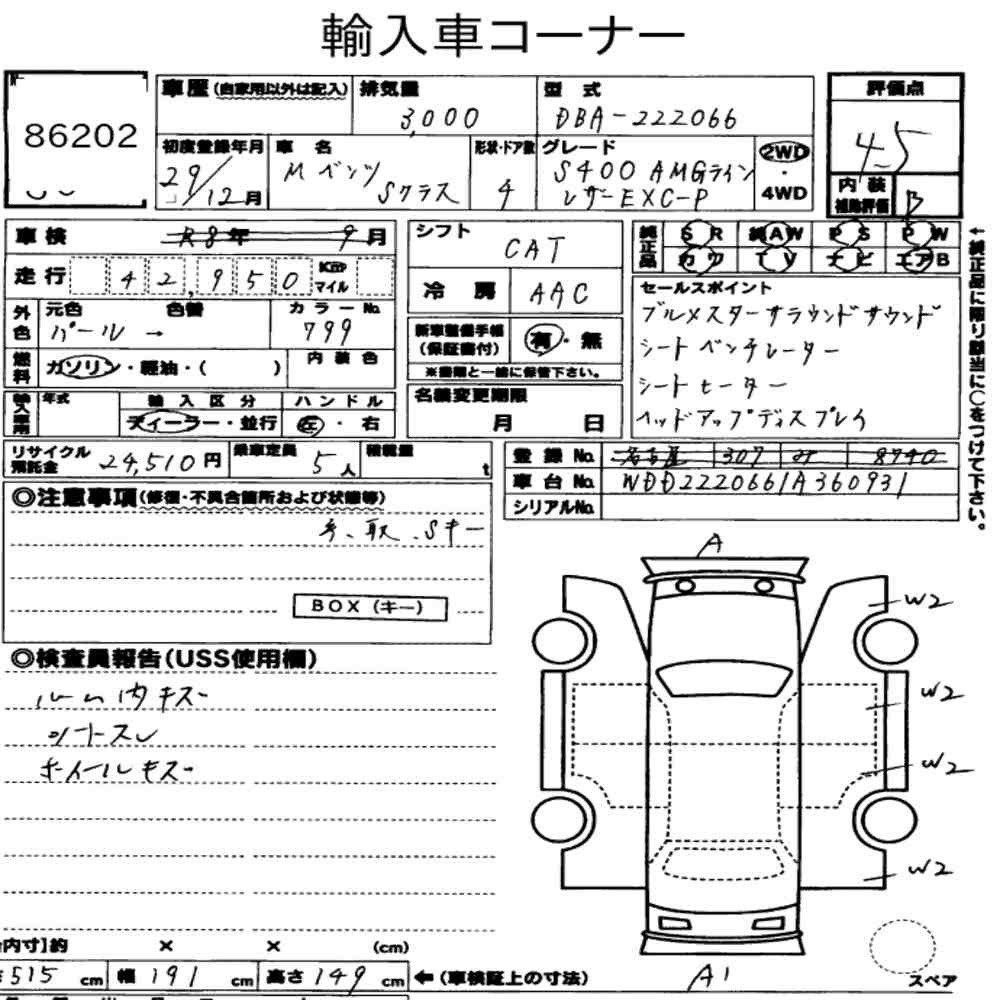 輸入車コーナー
86202
車歴(自家用以外は記入)
排気量
3,000
型式
DBA-222066
評価点
4.5
初度登録年月
29/12月
車名
Mベンツ
Sクラス
形状・ドア数
4
グレード
S400 AMGライン
レザーEXC-P
2WD
・
4WD
内装
補助評価
B
車検
R8年 9月
走行
42,950
Km
マイル
外色
元色
パール→
色替
カラーNo.
799
燃料
ガソリン・軽油・( )
内装色
輸入車用
年式
輸入区分
ディーラー・並行
ハンドル
左・右
シフト
CAT
冷房
AAC
新車整備手帳
(保証書付)
有・無
※書類と一緒に保管下さい。
名義変更期限
月 日
純正品
SR
純AW
PS
PW
カワ
TV
ナビ
エアB
←純正品に限り該当に○をつけて下さい。
セールスポイント
ブルメスターサラウンドサウンド
シートベンチレーター
シートヒーター
ヘッドアップディスプレイ
リサイクル
預託金
24,510円
乗車定員
5人
積載量
t
登録No.
名古屋 307 8740
車台No.
WDD2220661A360931
シリアルNo.
◎注意事項(修復・不具合箇所および状態等)
手、取、Sキー
BOX(キー)
◎検査員報告(USS使用欄)
ルーム内キズ
シートスレ
ホイールキズ
A
W2
W2
W2
W2
A1
スペア
内寸】約 × × (cm)
515cm
幅191cm
高さ149cm
←(車検証上の寸法)